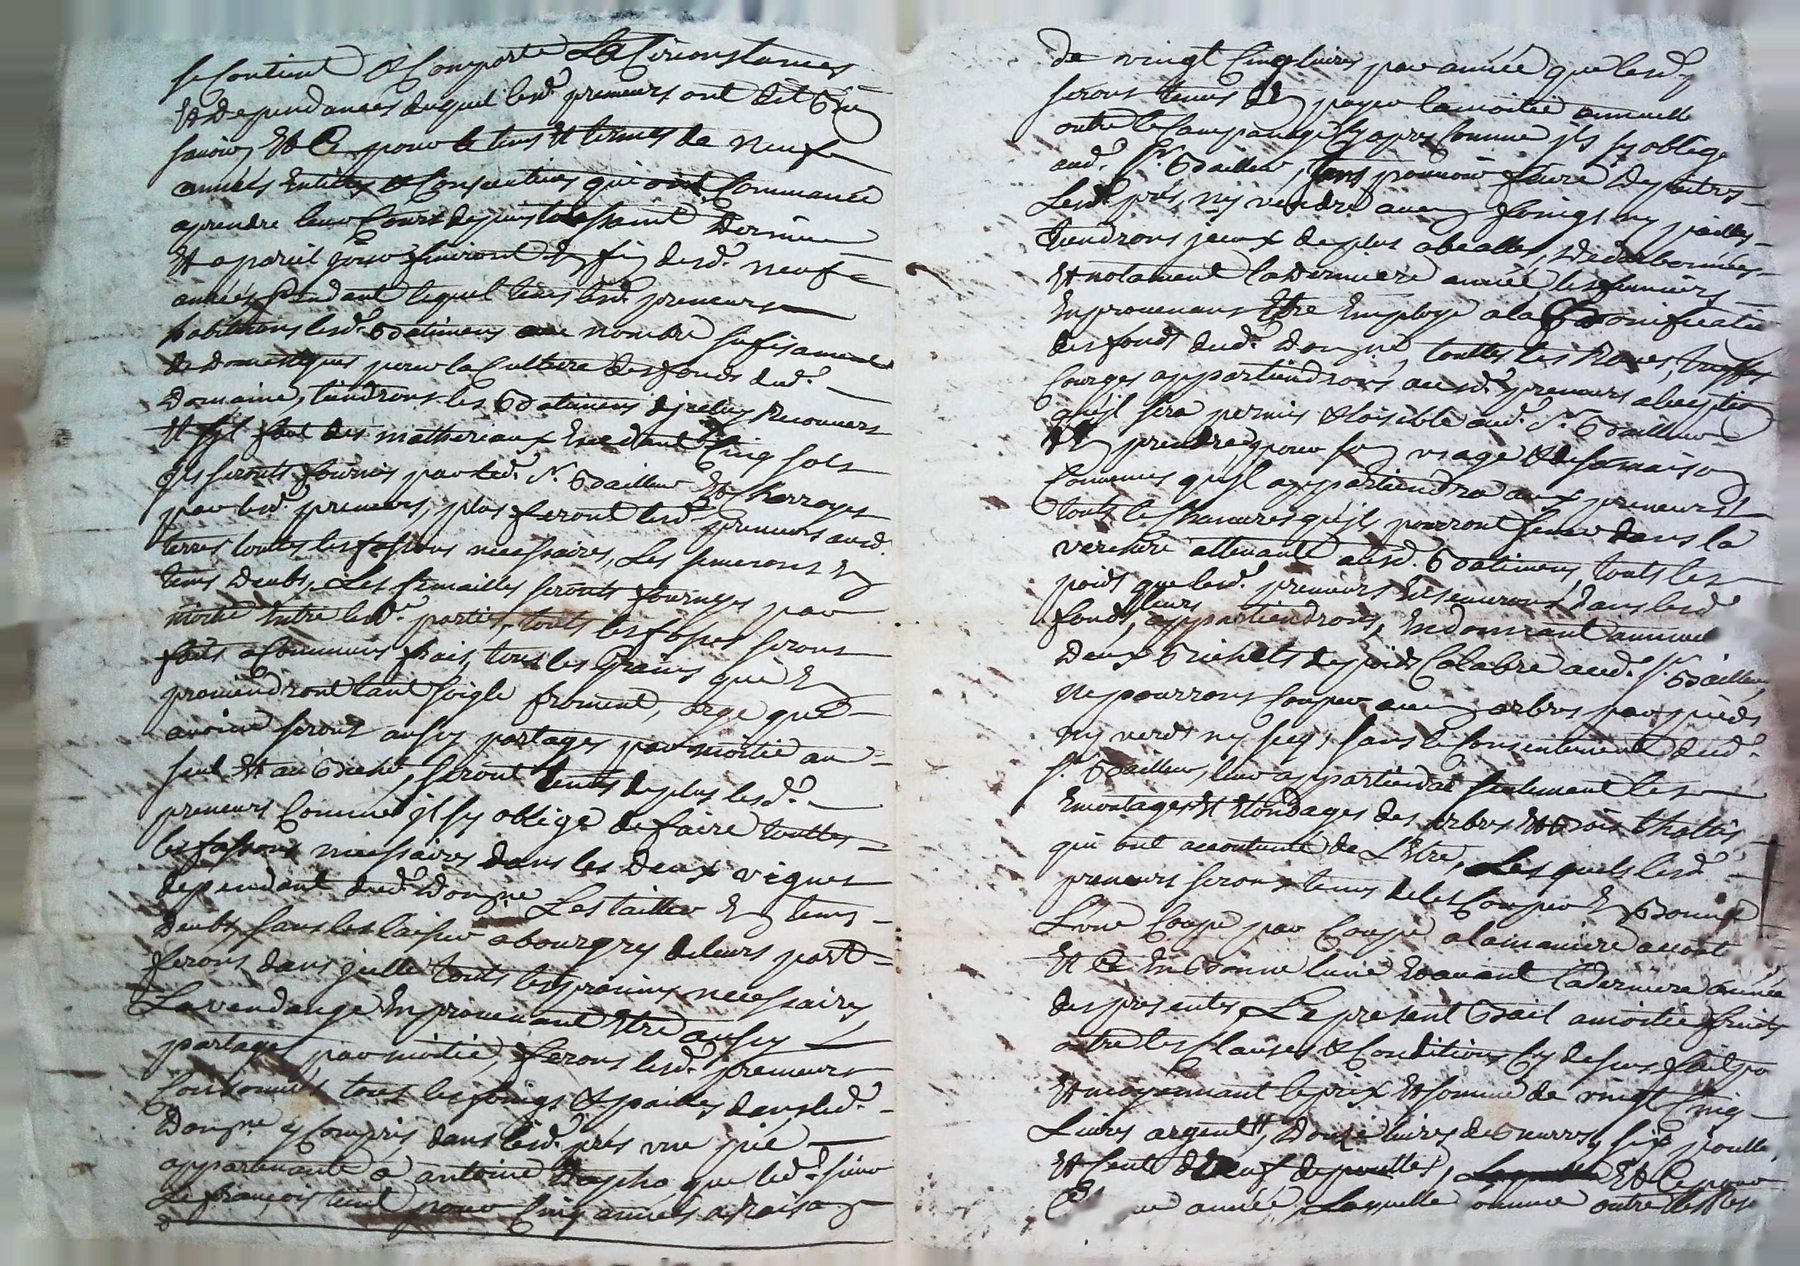 se Contient & Comporte Les Circonstances
Et dependances duquel lesd. preneurs ont dit bien
scavoir, Et Ce pour le tems Et termes de neuf
années Entieres & Consecutives qui ont Commancé
a prendre leur Cours depuis toussaint Dernier
Et a pareil jour finiront En fin desd. neuf
années Pendant lequel tems lesd. preneurs
habiteront lesd. Batimens au nombre sufisament
de Domestiques pour la Culture des fonds dud.
Domaine, tiendrons les Batimens d'jceluy Recouverts
Et s'jl faut des matheriaux Excedant Cinq sols
jls seronts fournis par led. Sr. Bailleur Et charroyes
par lesd. preneurs, plus feront lesd. preneurs ausd.
terres touttes les fassons necessaires, Les semerons En
tems deubs, Les semailles seronts fournyes par
moitié Entre lesd. parties, touts les fosses seront
faits a Communs frais, tous les Grains qui En
proviendront tant soigle froment, orge que
avoine seront aussy partagés par moitié au
seul Et au Bichet, seront tenus de plus lesd.
preneurs Comme jl sy oblige de faire touttes
les fassons necessaires dans les deux vignes
dependant dud. Domne. Les tailler En tems
deubs, sans les laisser abourgry de leurs part
ferons dans jcelle touts les provins necessaires
La vendange En provenant Etre aussy
partagé par moitié, ferons lesd. preneurs
Consommer tous les foings & pailles dans led.
Domne. y Compris dans lesd. prés une pie
appartenante a antoine que led. sieur
Le françois tient pour Cinq années a raison
de vingt Cinq livres par année que lesd.
serons tenus d'En payer la moitié annuelle
outre le Cy apres Comme jls sy oblige
aud. Sr. Baillieur, sans pouvoir faire Depaitres
Lesd. prés, ny vendre aucun foings ny pailles
tiendrons jceux de plus abeallés, Et desbornées
Et notament la Derniere année les fumiers
En provenans Etre Employé a la Bonification
des fonds dud. Domne. touttes les Raves, truffes
Courges appartiendrons ausd. preneurs a l'exeption
qu'jl sera permis & loisible aud. Sr. Baillieur
d'En prendre pour son usage & de sa maison
Convenus qu'jl appartiendra aux preneurs
touts le Chanvres qu'jls pourront semer dans la
verchere attenante ausd. Batimens, touts les
poids que lesd. preneurs En semeront dans lesd.
fonds, leurs appartiendrons, En donnant annuel
Deux Bichets de poids Calabre aud. Sr. Baillieur
ne pourrons Couper aucun arbres par pieds
ny verd ny secq, sans le Consentement dud.
Sr. Baillieur, leur appartiendra seulement les
Emontages Et Etondages des arbres Et Bois
qui ont accoutumé de L'Etre, Les quels lesd.
preneurs seront tenus de les Couper En Bonne
Lune Coupe par Coupe a la maniere
Et Ce En Bonne lune Et avant la derniere année
des presentes, Le present Bail a moitié fruits
outre les Clauses & Conditions Cy dessus fait
Et moyennant le prix Et somme de vingt Cinq
Livres argent, Douze livres de Beurre, six poulle,
Et Cent d'oeuf de poulles, Et Ce pour
année, Laquelle somme outre